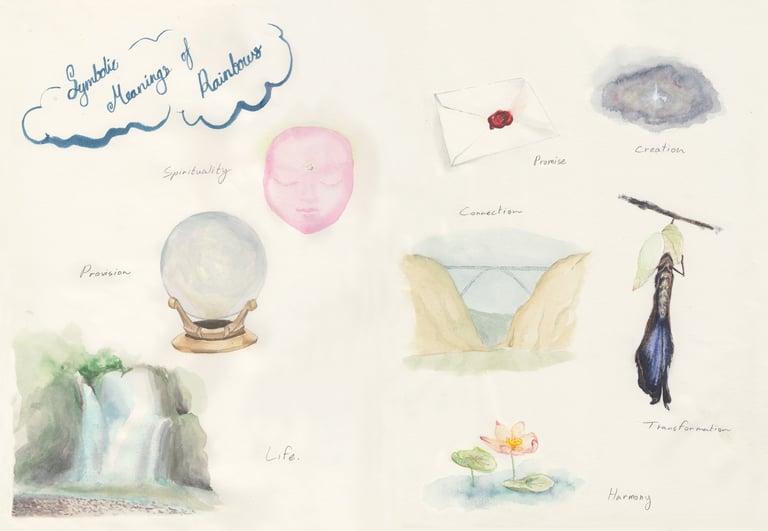 Symbolic
Meanings of
Rainbows
Spirituality
Provision
Life.
Promise
Creation
Connection
Transformation
Harmony